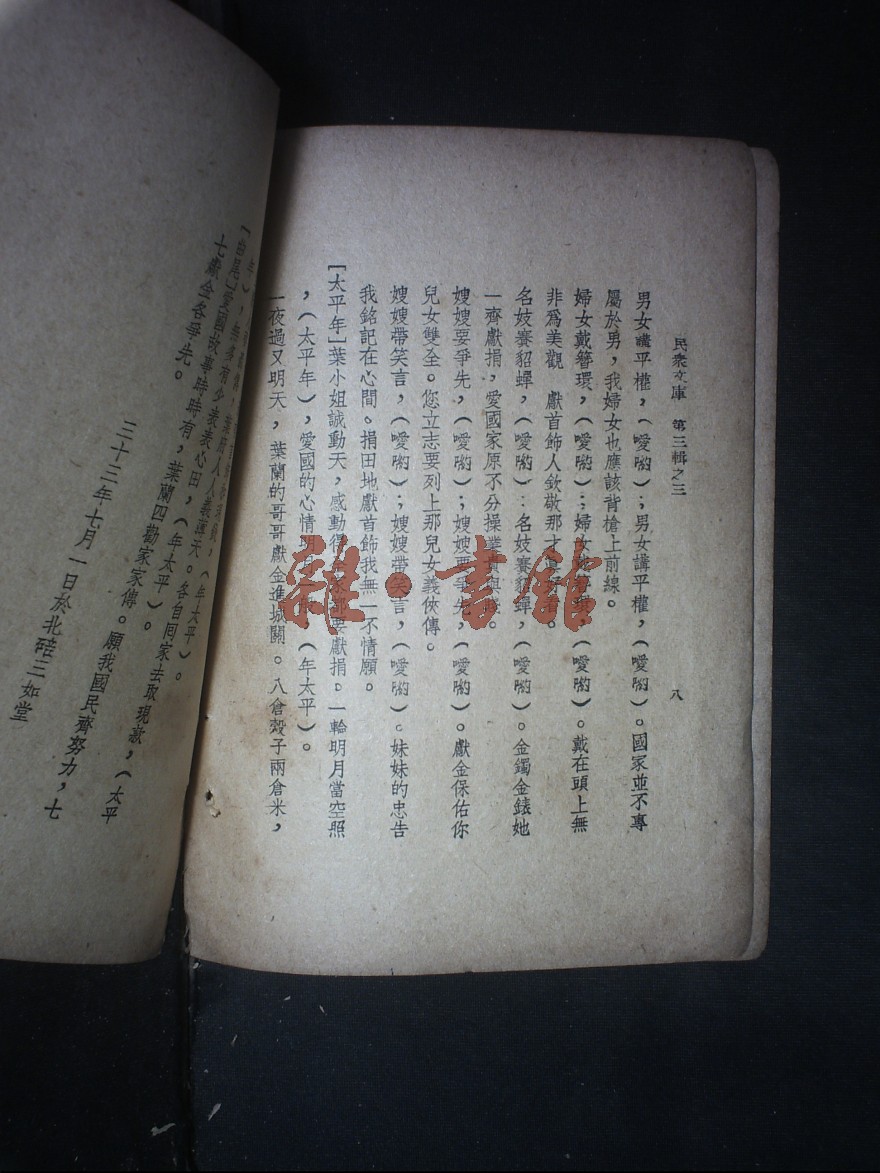 民衆文庫　第三輯之三
八
男女講平權，（噯喲）；男女講平權，（噯喲）。國家並不專
屬於男，我婦女也應該背槍上前線。
婦女戴簪環，（噯喲）；婦女戴簪環，（噯喲）。戴在頭上無
非爲美觀　獻首飾人欽敬那才
名妓賽貂蟬，（噯喲）：名妓賽貂蟬，（噯喲）。金鐲金錶她
一齊獻捐，愛國家原不分操業貴與賤。
嫂嫂要爭先，（噯喲）；嫂嫂要爭先，（噯喲）。獻金保佑你
兒女雙全。您立志要列上那兒女義俠傳。
嫂嫂帶笑言，（噯喲）；嫂嫂帶笑言，（噯喲）。妹妹的忠告
我銘記在心間。捐田地獻首飾我無一不情願。
［太平年］葉小姐誠動天，感動得要獻捐。一輪明月當空照
，（太平年），愛國的心情明月，（年太平）。
一夜過又明天，葉蘭的哥哥獻金進城關。八倉穀子兩倉米，
年），人人義薄天。各自回家去取現款，（太平
［曲尾］愛國故事時時有，葉蘭四勸家家傳。願我國民齊努力，七
七獻金各爭先。
三十三年七月一日於北碚三如堂
雜·書館